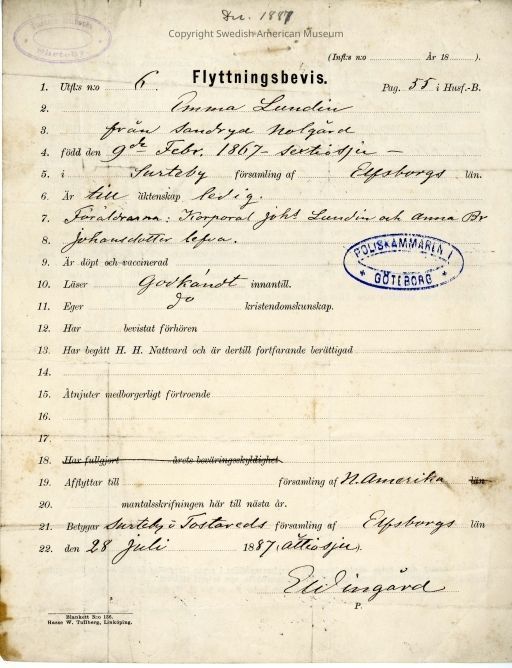 Dec. 1887
Copyright Swedish-American Museum
Surteby
(Infl:s n:o År 18 ).
Flyttningsbevis.
1. Utfl:s n:o 6. Pag. 55 i Husf.-B.
2. Emma Lundin
3. från Sandryd Nolgård
4. född den 9de Febr. 1867 - sextiosju -
5. i Surteby församling af Elfsborgs län.
6. Är till äktenskap ledig.
7. Föräldrarna: Korporal Johs Lundin och Anna Br
8. Johansdotter lefva.
9. Är döpt och vaccinerad
10. Läser Godkändt innantill.
11. Eger do kristendomskunskap.
12. Har bevistat förhören
13. Har begått H. H. Nattvard och är dertill fortfarande berättigad
14.
15. Åtnjuter medborgerligt förtroende
16.
17.
18. Har fullgjort årets beväringsskyldighet
19. Afflyttar till församling af N. Amerika län
20. mantalsskrifningen här till nästa år.
21. Betygar Surteby o Tostareds församling af Elfsborgs län
22. den 28 juli 1887 (åttiosju).
P.
POLISKAMMAREN I
GÖTEBORG
Blankett N:o 136.
Hesse W. Tullberg, Linköping.